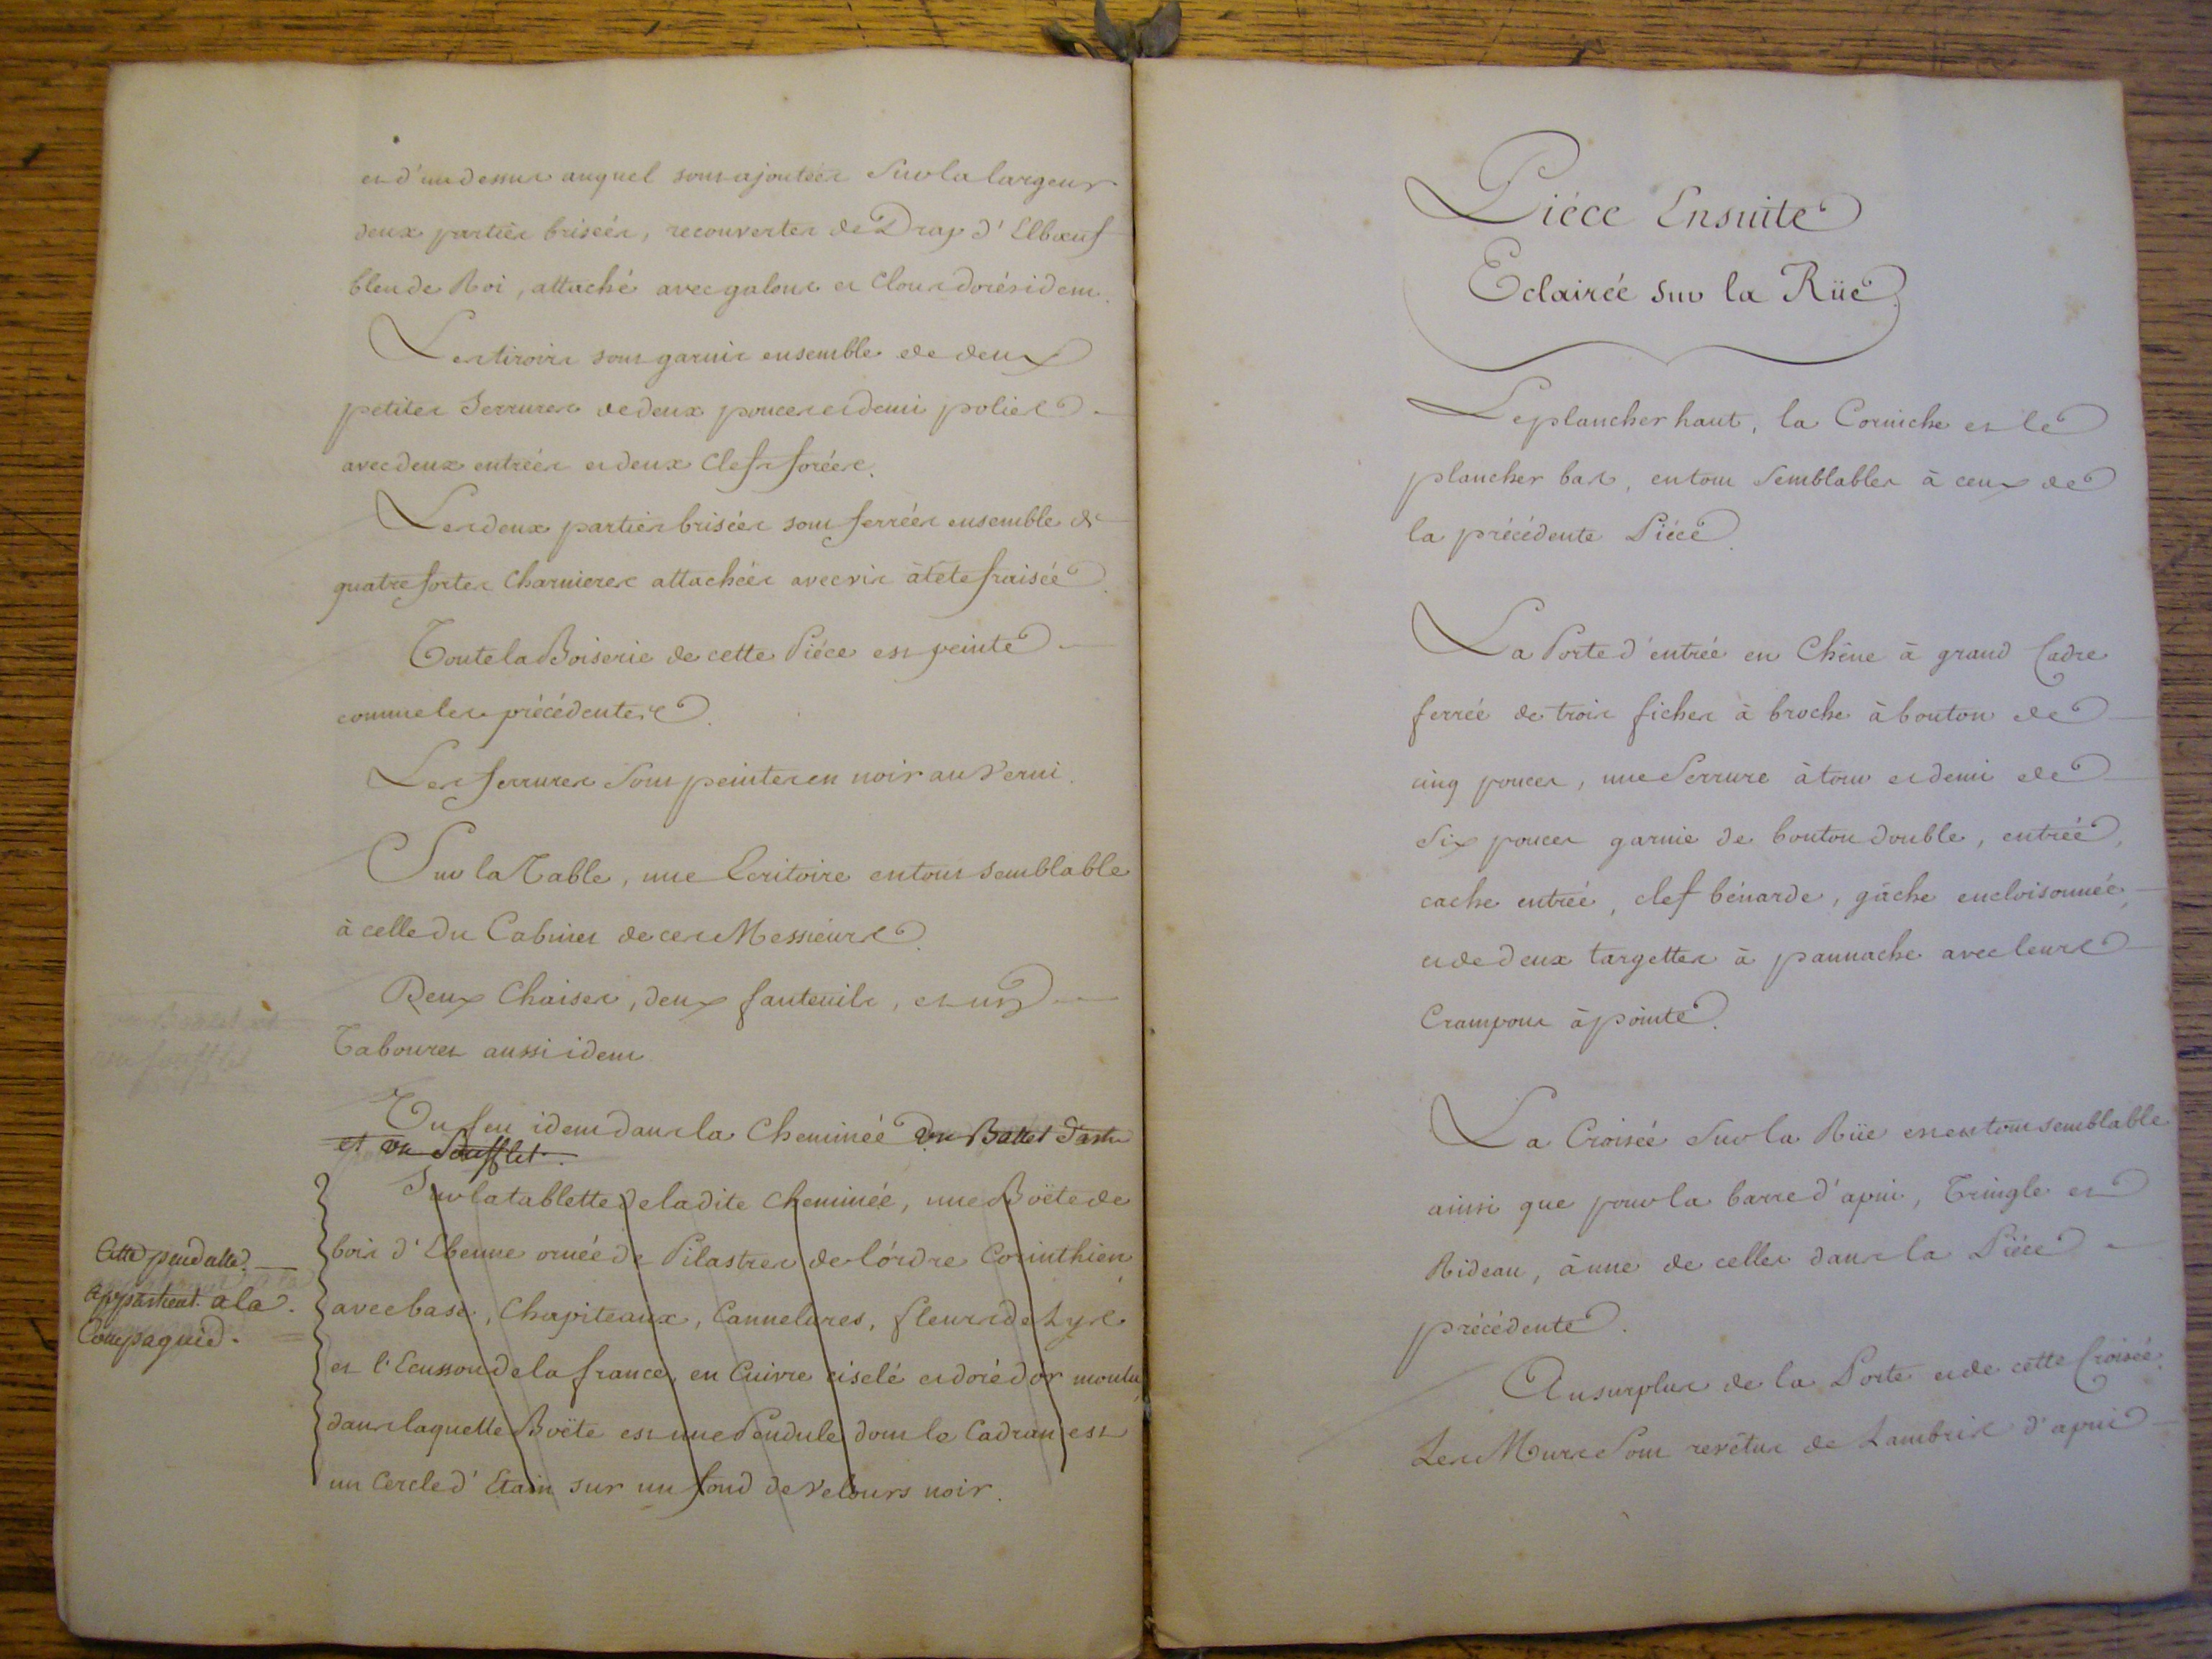 et d'un dessus auquel sont ajoutées sur la largeur
deux parties brisées, recouvertes de Drap d'Elbœuf
bleu de Roi, attaché avec galons et Clous dorés idem.
Les tiroirs sont garnis ensemble de deux
petites Serrures de deux pouces et demi polies
avec deux entrées et deux Clefs forées.
Les deux parties brisées sont ferrées ensemble de
quatre fortes Charnieres attachées avec vis à tete fraisée.
Toute la Boiserie de cette Piéce est peinte
comme les précédentes.
Les ferrures sont peintes en noir au Verni.
Sur la Table, une Ecritoire en tout semblable
à celle du Cabinet de ces Messieurs.
Deux Chaises, deux fauteuils, et un
Tabouret aussi idem
Un feu idem dans la Cheminée Un Ballet d'astre
et un Soufflet.
Sur la tablette de ladite Cheminée, une Boëte de
bois d'Ebenne ornée de Pilastres de l'órdre Corinthien
avec base, Chapiteaux, Cannelures, fleurs de Lys
et l'Ecusson de la france, en Cuivre ciselé et doré d'or moulu,
dans laquelle Boëte est une Pendule dont le Cadran est
un Cercle d'Etain sur un fond de Velours noir.
Cette pendulle
appartient a la
Compagnie.
Piéce Ensuite
Eclairée sur la Rüe.
Le plancher haut, la Corniche et le
plancher bas, en tout semblables à ceux de
la précédente Piéce.
La Porte d'entrée en Chêne à grand Cadre
ferrée de trois fiches à broche à bouton de
cinq pouces, une Serrure à tour et demi de
six pouces garnie de bouton double, entrée,
cache entrée, clef bénarde, gâche encloisonnée,
et de deux targettes à pannache avec leurs
Crampons à pointe.
La Croisée sur la Rüe est en tout semblable
ainsi que pour la barre d'apui, Tringle et
Rideau, à une de celles dans la Piéce
précédente.
Au surplus de la Porte et de cette Croisée,
Les Murs sont revêtus de Lambris d'apui